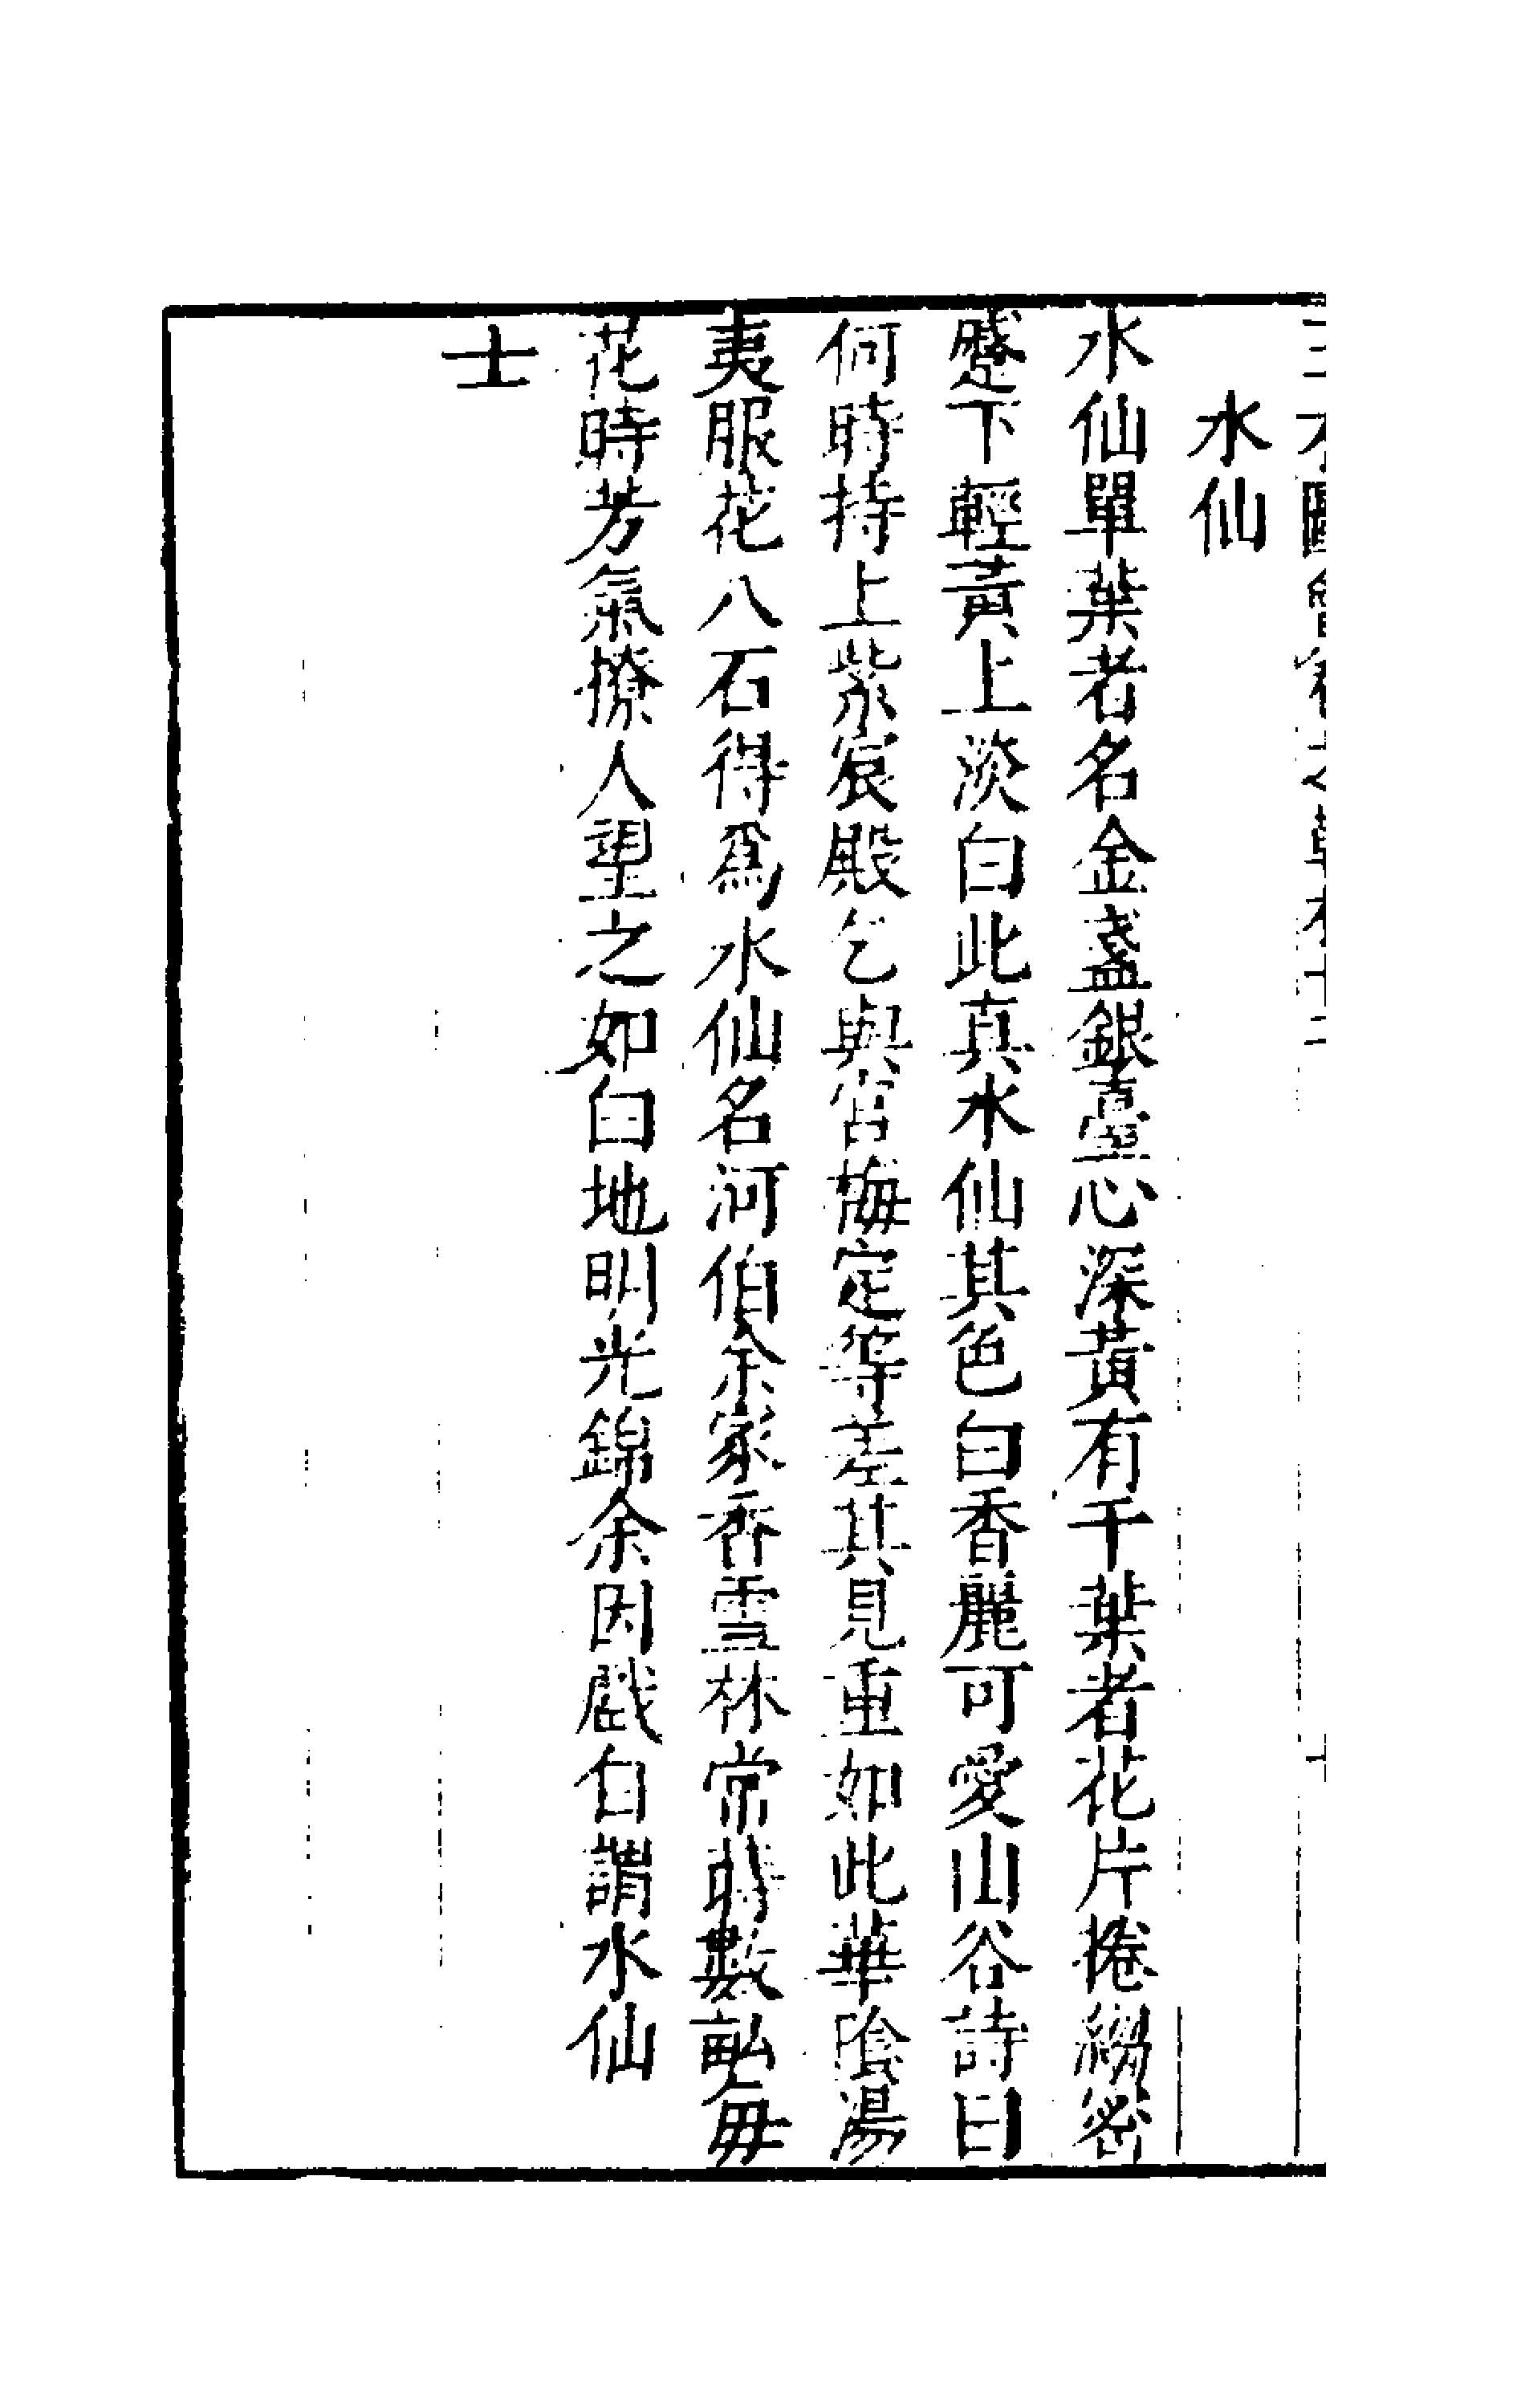 水仙
水仙單葉者名金盞銀臺心深黃有千葉者花片捲縐密
蹙下輕黃上淡白此真水仙其色白香麗可愛山谷詩曰
何時持上紫宸殿乞與宮梅定等差其見重如此華陰湯
夷服花八石得爲水仙名河伯余家香雪林常時數畝每
花時芳氣撩人望之如白地明光錦余因戲自謂水仙
士